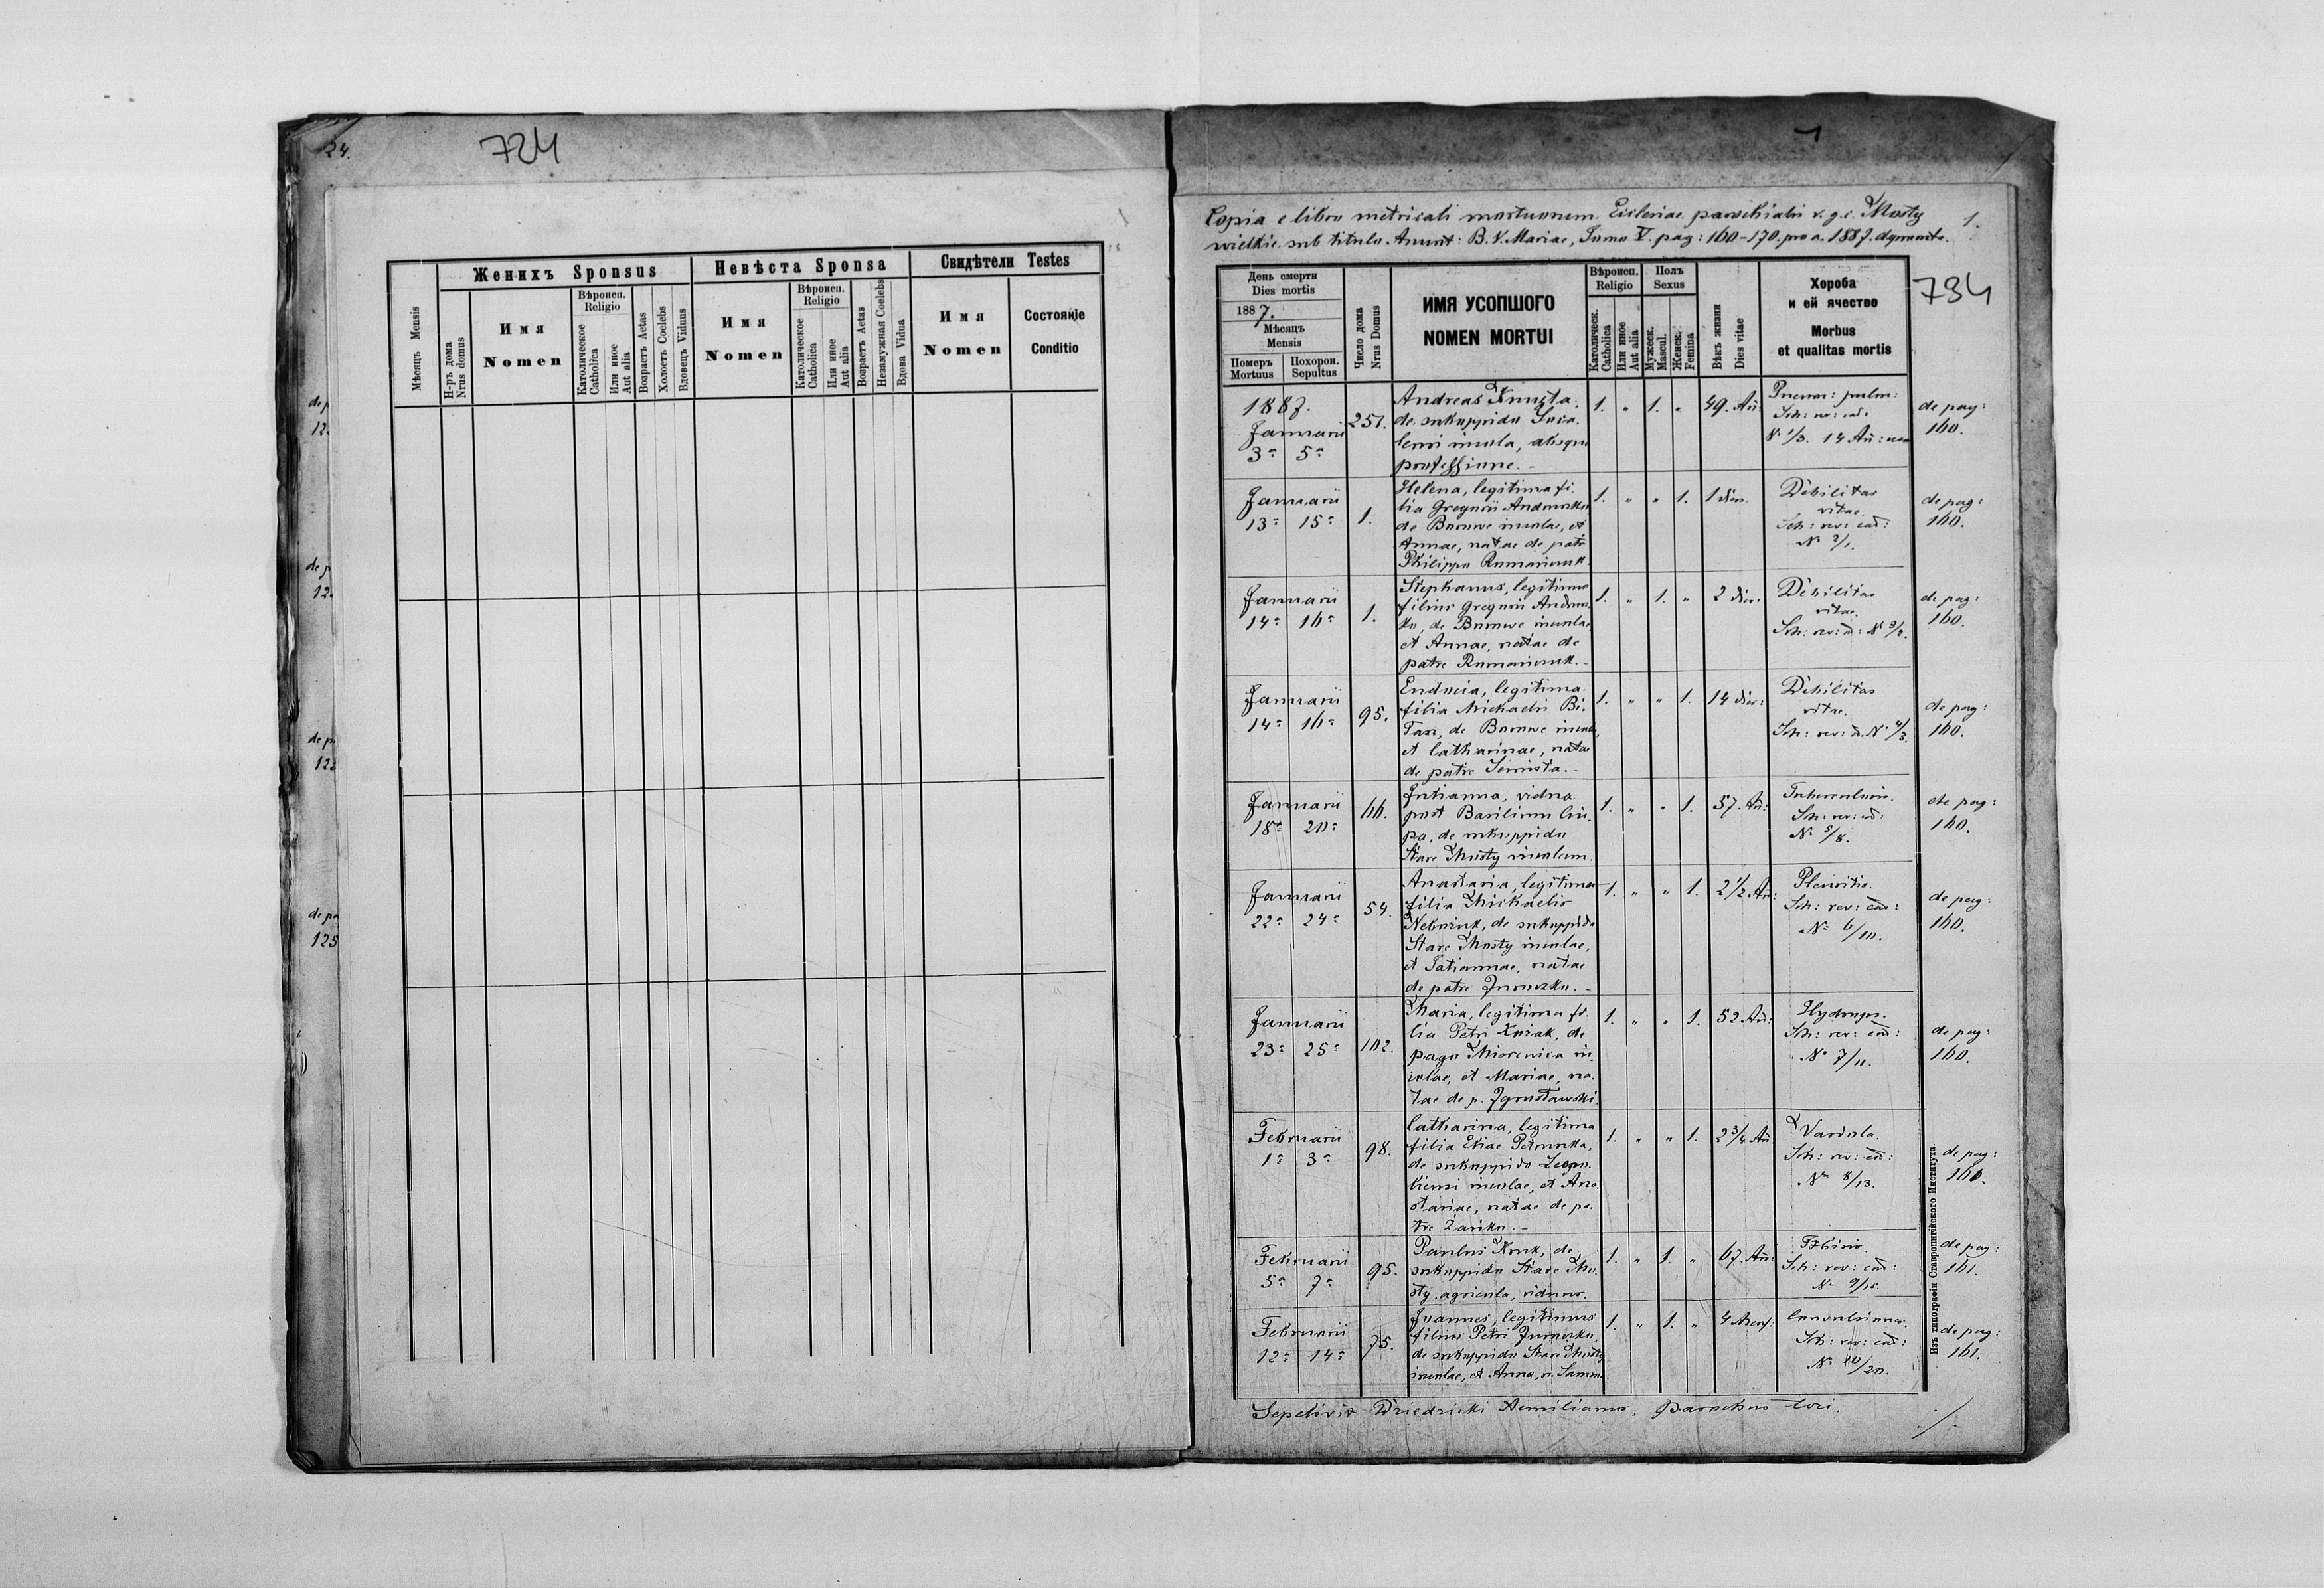 24.
724
Женихъ Sponsus
Невѣста Sponsa
Свидѣтели Testes
Мѣсяцъ Mensis
Н-ръ дома
Nrus domus
Имя
Nomen
Вѣроисп.
Religio
Католическое
Catholica
Или иное
Aut alia
Возрастъ Aetas
Холостъ Coelebs
Вдовецъ Viduus
Имя
Nomen
Вѣроисп.
Religio
Католическое
Catholica
Или иное
Aut alia
Возрастъ Aetas
Незамужная Coelebs
Вдова Vidua
Имя
Nomen
Состояніе
Conditio
de p
12.
de p
12.
de p.
122
de pa
125
1
Copia e libro metricali mortuorum Ecclesiae parochialis r. g. c. Mosty
wielkie sub titulo Anunt: B. V. Mariae, Tomo V. pag: 160-170. pro a. 1887.
1.
734
День смерти
Dies mortis
1887.
Мѣсяцъ
Mensis
Померъ
Mortuus
Похорон.
Sepultus
Число дома
Nrus Domus
ИМЯ УСОПШОГО
NOMEN MORTUI
Вѣроисп.
Religio
Католическ.
Catholica
Или иное
Aut alia
Полъ
Sexus
Мужеск.
Mascul.
Женск.
Femina
Вѣкъ жизни
Dies vitae
Хороба
и ей ячество
Morbus
et qualitas mortis
1887.
Januarii
3a 5a
251.
Andreas
de suboppido
lensi incola, absque
professione.-
1. " 1. "
49. An:
Pneum: pulm:
Sch: rev: cad:
No 1/3. 14 An:
de pag:
160.
Januarii
13a 15a
1.
Helena, legitima fi-
lia Gregorii
de Borowe incolae, et
Annae, natae de patre
Philippo Romaniouk.
1. " " 1.
1 dies.
Debilitas
vitae.
Sch: rev: cad:
No 2/1.
de pag:
160.
Januarii
14a 16a
1.
Stephanus, legitimus
filius Gregorii
de Borowe incolae,
et Annae, natae de
patre Romaniouk.-
1. " 1. "
2 dies.
Debilitas
vitae.
Sch: rev: cad: No 3/2.
de pag:
160.
Januarii
14a 16a
95.
Eudocia, legitima
filia Michaelis Bi-
de Borowe incolae,
et Catharinae, natae
de patre
1. " " 1.
14 dies:
Debilitas
vitae.
Sch: rev: cad. No 4/3.
de pag:
160.
Januarii
18a 20a
66.
vidua
post Basilium Ciu-
pa, de suboppido
Stare Mosty incolam.
1. " " 1.
57. An:
Tuberculosis.
Sch: rev: cad:
No 5/8.
de pag:
160.
Januarii
22a 24a
54.
Anastasia, legitima
filia Michaelis
de suboppido
Stare Mosty incolae,
et Tatiannae, natae
de patre
1. " " 1.
2 1/2. An:
Pleuritis.
Sch: rev: cad:
No 6/10.
de pag:
160.
Januarii
23a 25a
102.
Maria, legitima fi-
lia Petri Koziak, de
pago in-
colae, et Mariae, na-
tae de p.
1. " " 1.
52 An:
Hydrops.
Sch: rev: cad:
No 7/11.
de pag:
160.
Februarii
1a 3a
98.
Catharina, legitima
filia Eliae
de suboppido Leopo-
liensi incolae, et Ana-
stasiae, natae de pa-
tre Zariko.-
1. " " 1.
2 3/4 An
Variola.
Sch: rev: cad:
No 8/13.
de pag:
160.
Februarii
5a 7a
95.
Paulus de
suboppido Stare Mo-
sty agricola, viduus.
1. " 1. "
67. An:
Phtisis.
Sch: rev: cad:
No 9/15.
de pag:
161.
Februarii
12a 14a
75.
Joannes, legitimus
filius Petri
de suboppido Stare Mosty
incolae, et Anna,
1. " 1. "
4 Mens:
Convulsiones.
Sch: rev: cad:
No 10/20.
de pag:
161.
Изъ типографіи Ставропигійского Института
Sepelivit Dziedzicki Aemilianus, Parochus loci.